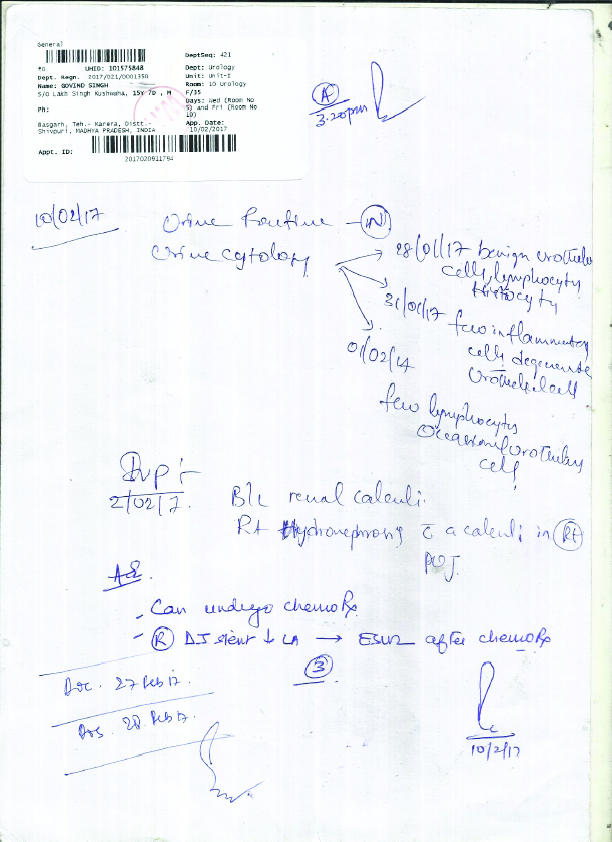 General
DeptSeq: 421
UHID: 101575848
Dept: Urology
Dept. Regn. 2017/021/0001350
Unit: Unit-I
Name: GOVIND SINGH
Room: 10 Urology
S/O Lakh Singh Kushwaha, 15Y 7D , M
F/35
Ph:
Days: Wed (Room No
5) and Fri (Room No
10)
Basgarh, Teh.- Karera, Distt.-
App. Date:
Shivpuri, MADHYA PRADESH, INDIA
10/02/2017
Appt. ID:
2017020911794
A
3.20pm
10/02/17
Urine Routine - N
Urine cytology
28/01/17 benign urothelial
cells, lymphocyty
Histocyty
31/01/17 few inflammatory
cells degenerate
Urothelial cell
01/02/14
few lymphocyty
Occasional urothelial
cell
IVP :-
2/02/17.
B/L renal calculi.
Rt Hydronephrosis c̄ a calculi in Rt
PUJ.
Adv.
- Can undergo chemo Rx
- R DJ stent ↓ LA → ESWL after chemo Rx
3
DOC. 27 Feb 17.
DOS. 28 Feb 17.
10/2/17